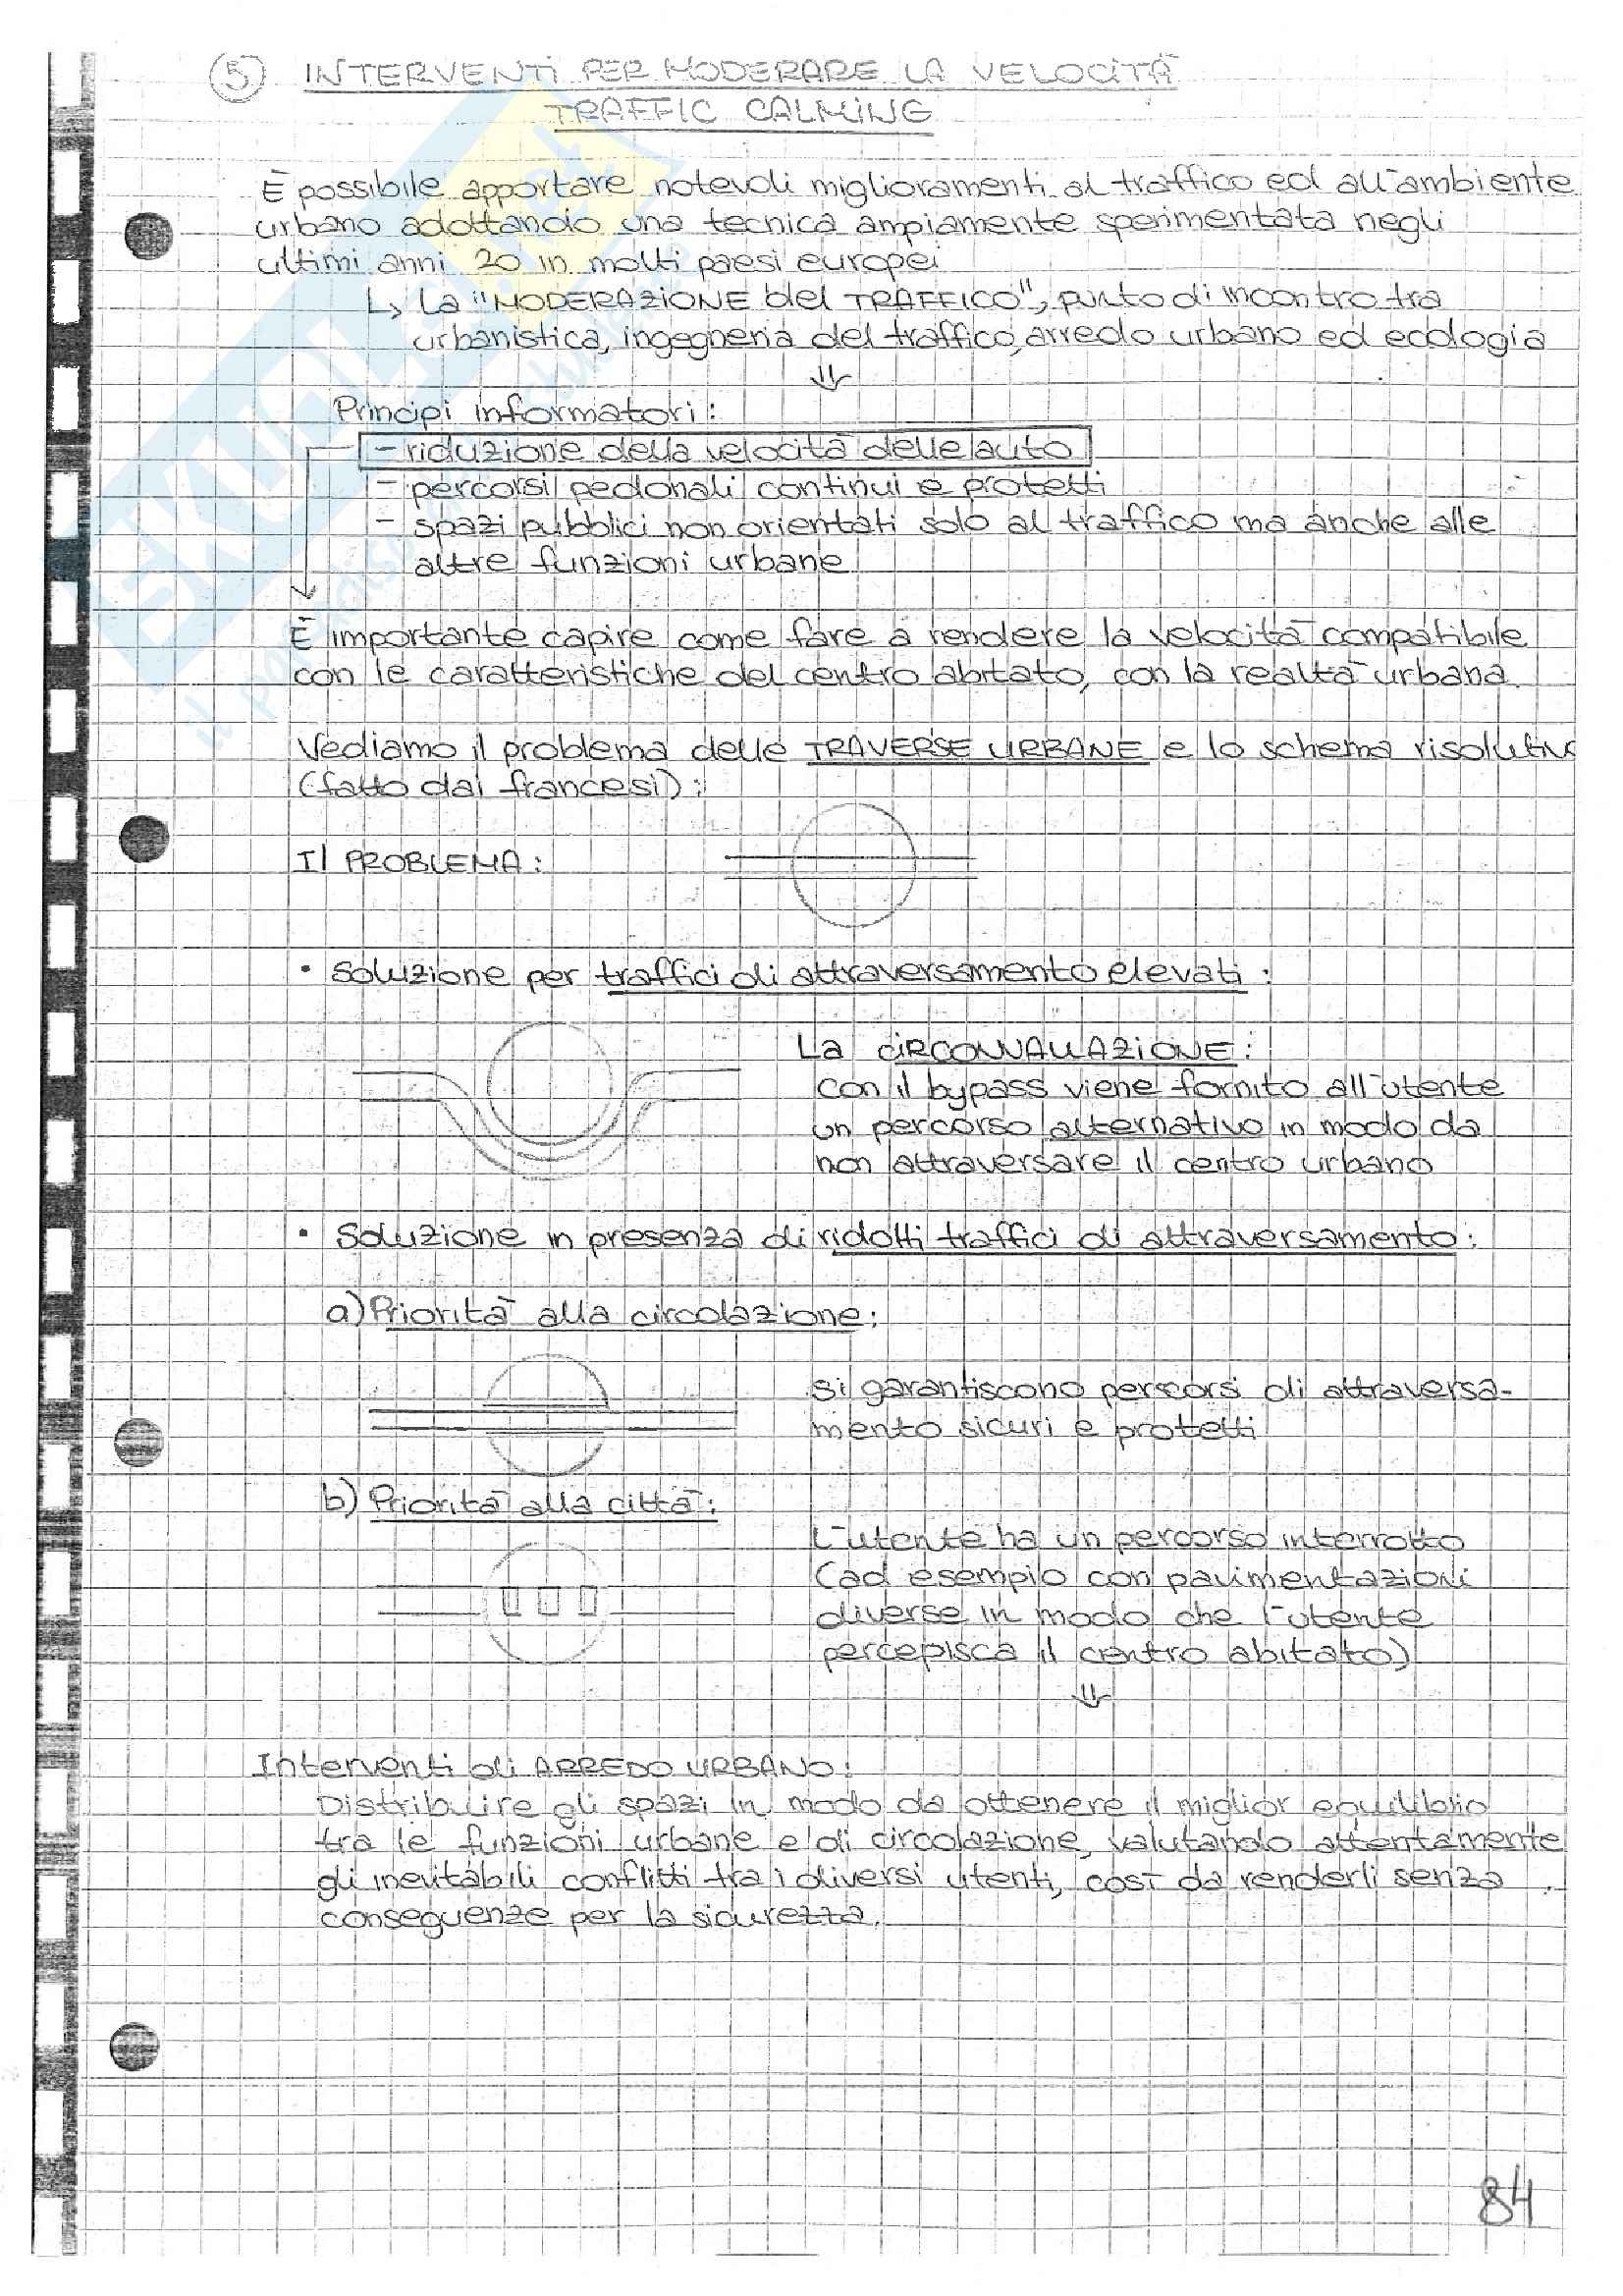 5 INTERVENTI PER MODERARE LA VELOCITÀ
TRAFFIC CALMING
È possibile apportare notevoli miglioramenti al traffico ed all'ambiente
urbano adottando una tecnica ampiamente sperimentata negli
ultimi anni 20 in molti paesi europei
↳ La "MODERAZIONE del TRAFFICO", punto di incontro tra
urbanistica, ingegneria del traffico, arredo urbano ed ecologia
⇓
Principi informatori:
- riduzione della velocità delle auto
- percorsi pedonali continui e protetti
- spazi pubblici non orientati solo al traffico ma anche alle
altre funzioni urbane
È importante capire come fare a rendere la velocità compatibile
con le caratteristiche del centro abitato, con la realtà urbana.
Vediamo il problema delle TRAVERSE URBANE e lo schema risolutivo
(fatto dai francesi):
Il PROBLEMA:
• Soluzione per traffici di attraversamento elevati:
La CIRCONVALLAZIONE:
con il bypass viene fornito all'utente
un percorso alternativo in modo da
non attraversare il centro urbano
• Soluzione in presenza di ridotti traffici di attraversamento:
a) Priorità alla circolazione:
si garantiscono percorsi di attraversa-
mento sicuri e protetti
b) Priorità alla città:
L'utente ha un percorso interrotto
(ad esempio con pavimentazioni
diverse in modo che l'utente
percepisca il centro abitato)
⇓
Interventi di ARREDO URBANO:
Distribuire gli spazi in modo da ottenere il miglior equilibrio
tra le funzioni urbane e di circolazione, valutando attentamente
gli inevitabili conflitti tra i diversi utenti, così da renderli senza
conseguenze per la sicurezza.
84